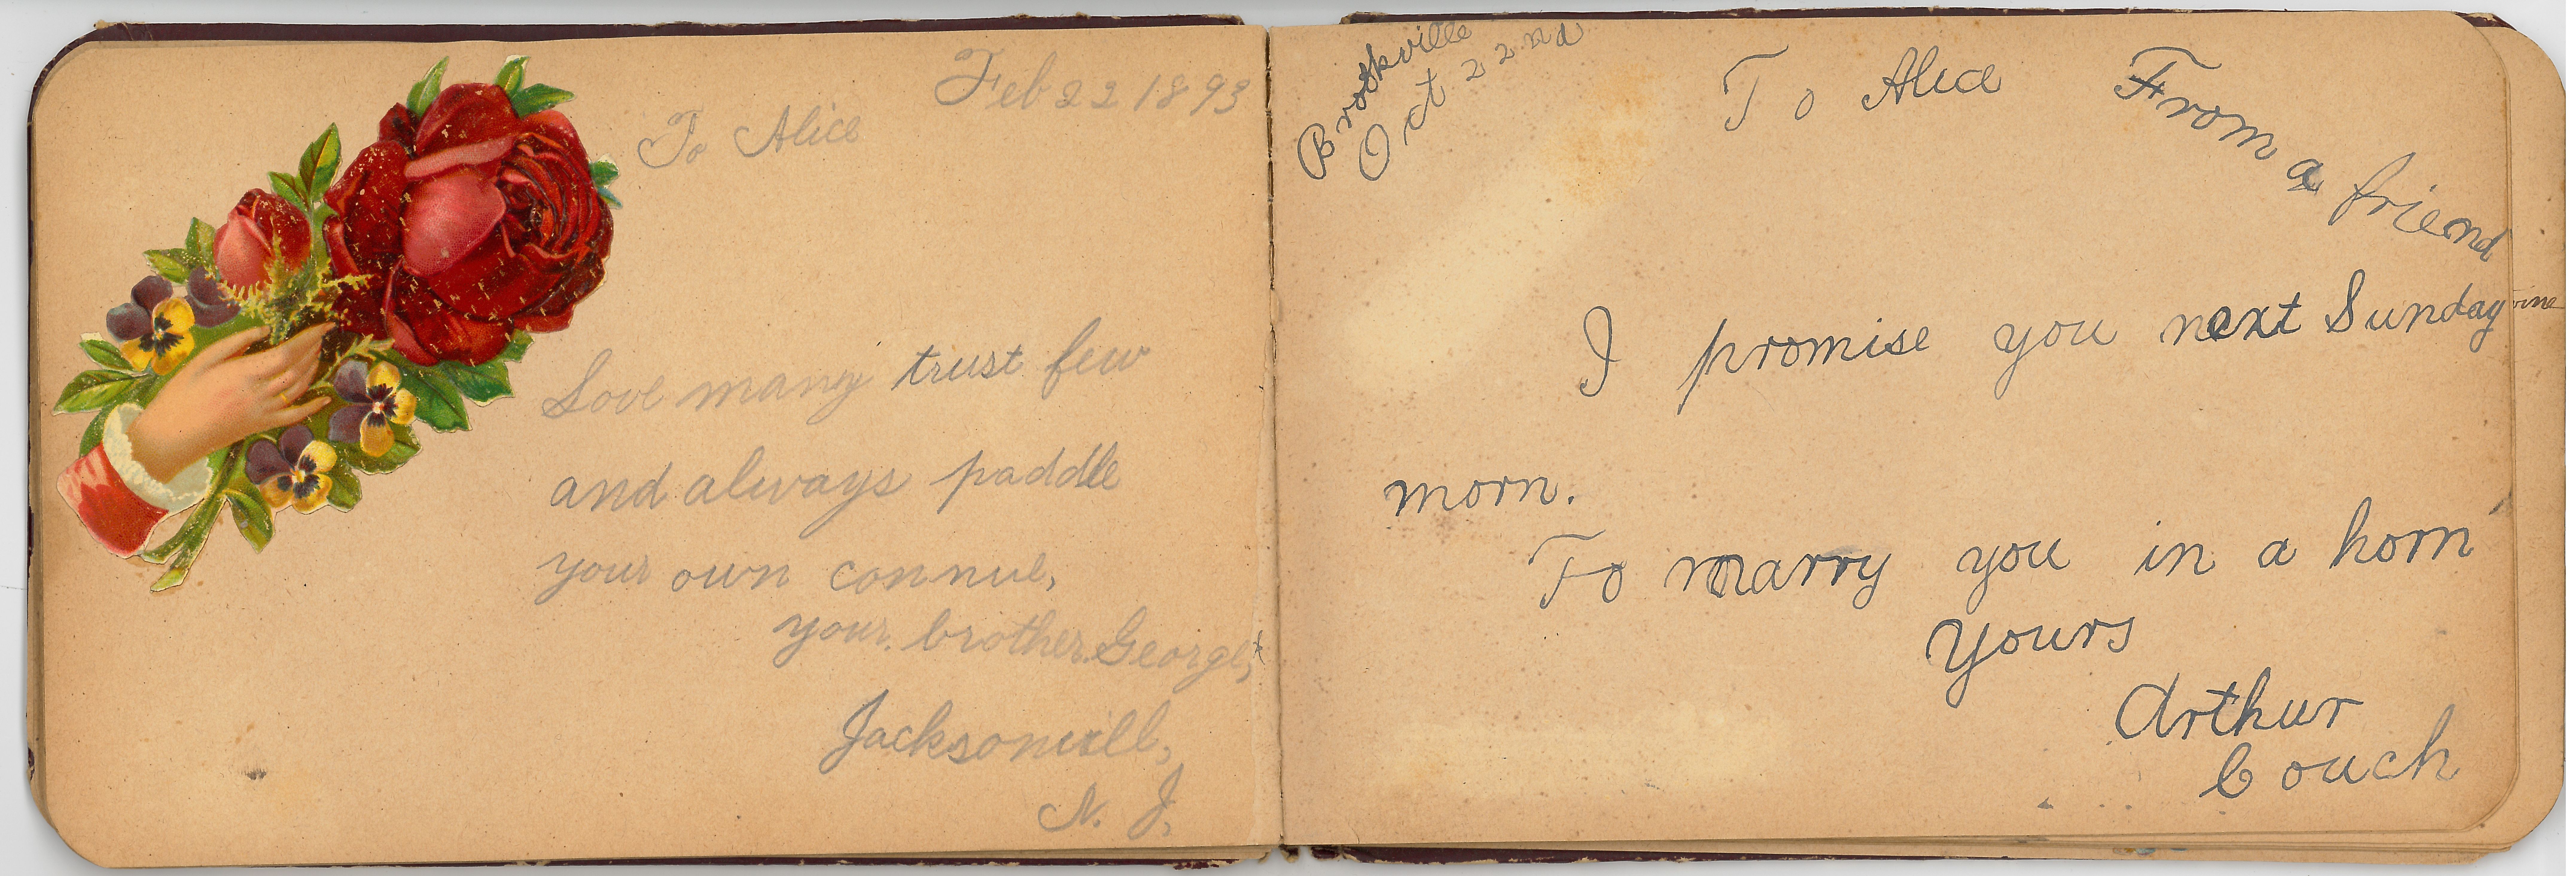 Feb 22 1893
To Alice
Love many trust few
and always paddle
your own connue,
your brother George,
Jacksonvill,
N. J.
Brookville
Oct 22nd
To Alice From a friend
I promise you next Sunday
morn.
To marry you in a horn
Yours
Arthur
Couch